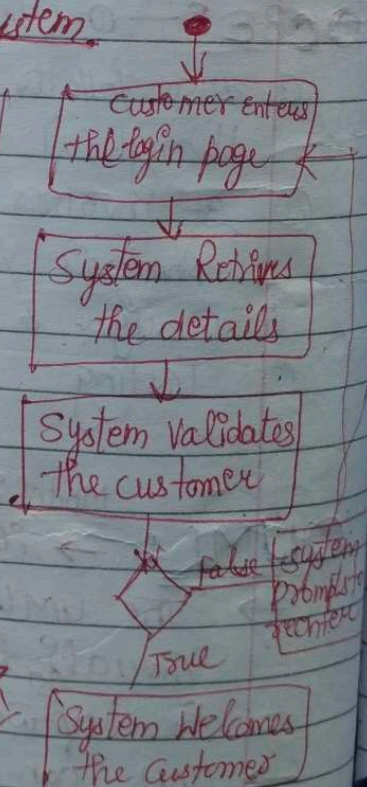 ystem
Customer enters
the login page
System Retrives
the details
System Validates
the customer
False
System
prompts to
reenter
True
System Welcomes
the Customer